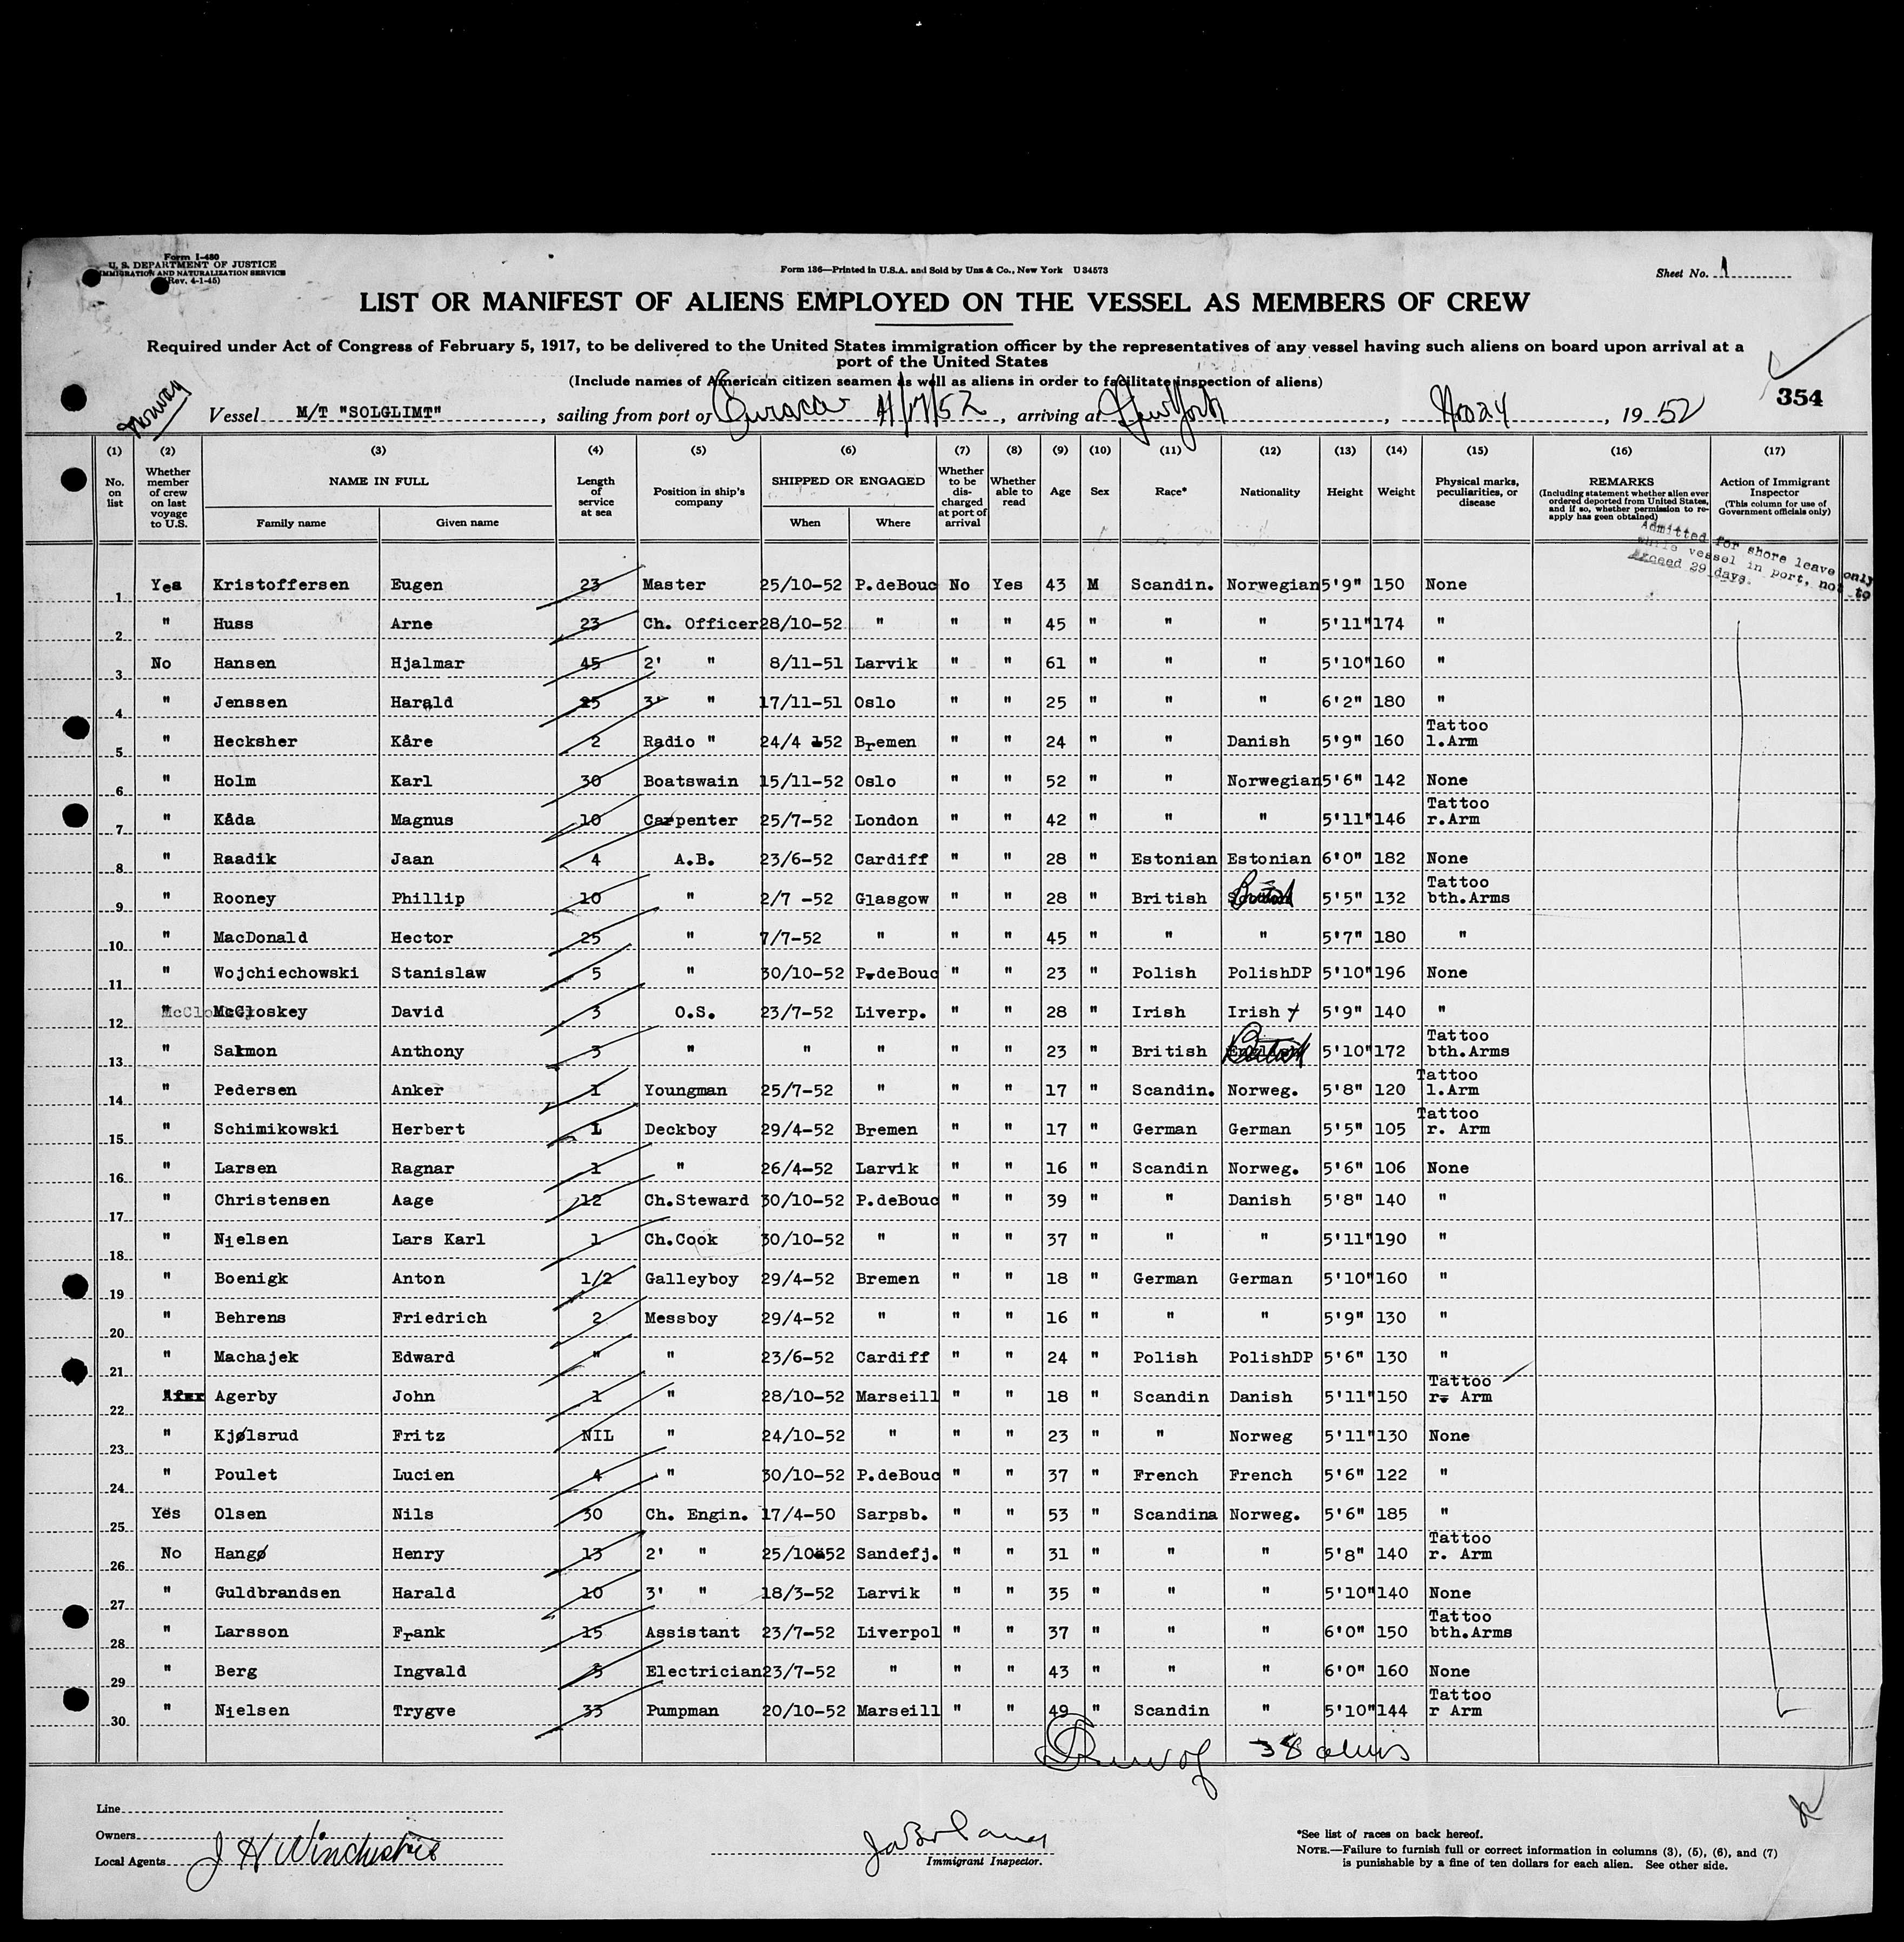 Form I-480
U. S. DEPARTMENT OF JUSTICE
IMMIGRATION AND NATURALIZATION SERVICE
(Rev. 4-1-45)
Form 136—Printed in U.S.A. and Sold by Unz & Co., New York U 34573
Sheet No. 1
LIST OR MANIFEST OF ALIENS EMPLOYED ON THE VESSEL AS MEMBERS OF CREW
Required under Act of Congress of February 5, 1917, to be delivered to the United States immigration officer by the representatives of any vessel having such aliens on board upon arrival at a
port of the United States
(Include names of American citizen seamen as well as aliens in order to facilitate inspection of aliens)
354
Norway
Vessel M/T "SOLGLIMT", sailing from port of Curacao 11/17/52, arriving at New York, Nov 24, 1952
(1) (2) (3) (4) (5) (6) (7) (8) (9) (10) (11) (12) (13) (14) (15) (16) (17)
No. on list
Whether member of crew on last voyage to U.S.
NAME IN FULL
Family name
Given name
Length of service at sea
Position in ship's company
SHIPPED OR ENGAGED
When
Where
Whether to be discharged at port of arrival
Whether able to read
Age
Sex
Race*
Nationality
Height
Weight
Physical marks, peculiarities, or disease
REMARKS
(Including statement whether alien ever ordered deported from United States, and if so, whether permission to re-apply has geen obtained)
Action of Immigrant Inspector
(This column for use of Government officials only)
Admitted for shore leave only
while vessel in port, not to
exceed 29 days.
1 Yes Kristoffersen Eugen 23 Master 25/10-52 P.deBouc No Yes 43 M Scandin. Norwegian 5'9" 150 None
2 " Huss Arne 23 Ch. Officer 28/10-52 " " " 45 " " " 5'11" 174 "
3 No Hansen Hjalmar 45 2' " 8/11-51 Larvik " " 61 " " " 5'10" 160 "
4 " Jenssen Harald 25 3' " 17/11-51 Oslo " " 25 " " " 6'2" 180 "
5 " Hecksher Kåre 2 Radio " 24/4 152 Bremen " " 24 " " Danish 5'9" 160 Tattoo l.Arm
6 " Holm Karl 30 Boatswain 15/11-52 Oslo " " 52 " " Norwegian 5'6" 142 None
7 " Kåda Magnus 10 Carpenter 25/7-52 London " " 42 " " " 5'11" 146 Tattoo r.Arm
8 " Raadik Jaan 4 A.B. 23/6-52 Cardiff " " 28 " Estonian Estonian 6'0" 182 None
9 " Rooney Phillip 10 " 2/7 -52 Glasgow " " 28 " British British 5'5" 132 Tattoo bth.Arms
10 " MacDonald Hector 25 " 7/7-52 " " " 45 " " " 5'7" 180 "
11 " Wojchiechowski Stanislaw 5 " 30/10-52 P.deBouc " " 23 " Polish PolishDP 5'10" 196 None
12 " McCloskey David 3 O.S. 23/7-52 Liverp. " " 28 " Irish Irish 5'9" 140 "
13 " Salmon Anthony 3 " " " " " 23 " British British 5'10" 172 Tattoo bth.Arms
14 " Pedersen Anker 1 Youngman 25/7-52 " " " 17 " Scandin. Norweg. 5'8" 120 Tattoo l.Arm
15 " Schimikowski Herbert 1 Deckboy 29/4-52 Bremen " " 17 " German German 5'5" 105 Tattoo r. Arm
16 " Larsen Ragnar 1 " 26/4-52 Larvik " " 16 " Scandin Norweg. 5'6" 106 None
17 " Christensen Aage 12 Ch.Steward 30/10-52 P.deBouc " " 39 " " Danish 5'8" 140 "
18 " Nielsen Lars Karl 1 Ch.Cook 30/10-52 " " " 37 " " " 5'11" 190 "
19 " Boenigk Anton 1/2 Galleyboy 29/4-52 Bremen " " 18 " German German 5'10" 160 "
20 " Behrens Friedrich 2 Messboy 29/4-52 " " " 16 " " " 5'9" 130 "
21 " Machajek Edward " " 23/6-52 Cardiff " " 24 " Polish PolishDP 5'6" 130 "
22 Agerby John 1 " 28/10-52 Marseill " " 18 " Scandin Danish 5'11" 150 Tattoo r. Arm
23 " Kjølsrud Fritz NIL " 24/10-52 " " " 23 " " Norweg 5'11" 130 None
24 " Poulet Lucien 4 " 30/10-52 P.deBouc " " 37 " French French 5'6" 122 "
25 Yes Olsen Nils 30 Ch. Engin. 17/4-50 Sarpsb. " " 53 " Scandina Norweg. 5'6" 185 "
26 No Hangø Henry 13 2' " 25/10-52 Sandefj. " " 31 " " " 5'8" 140 Tattoo r. Arm
27 " Guldbrandsen Harald 10 3' " 18/3-52 Larvik " " 35 " " " 5'10" 140 None
28 " Larsson Frank 15 Assistant 23/7-52 Liverpol " " 37 " " " 6'0" 150 Tattoo bth.Arms
29 " Berg Ingvald 5 Electrician 23/7-52 " " " 43 " " " 6'0" 160 None
30 " Nielsen Trygve 33 Pumpman 20/10-52 Marseill " " 49 " Scandin " 5'10" 144 Tattoo r Arm
38 aliens
Line
Owners
Local Agents J H Winchester
Immigrant Inspector.
*See list of races on back hereof.
NOTE.—Failure to furnish full or correct information in columns (3), (5), (6), and (7)
is punishable by a fine of ten dollars for each alien. See other side.